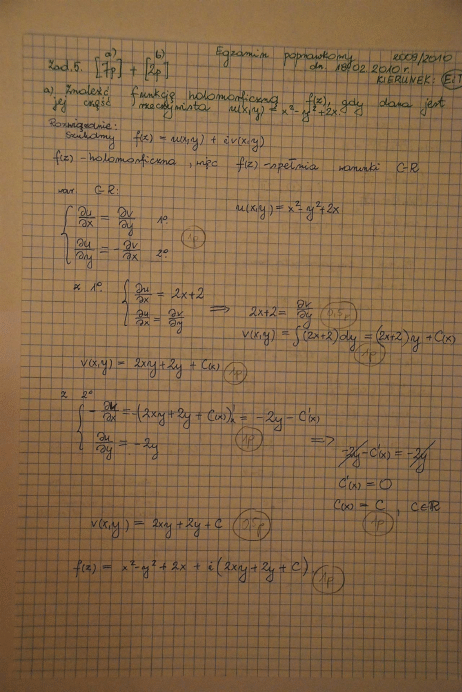 Egzamin poprawkowy 2009/2010
dn. 18.02.2010 r.
KIERUNEK: EiT
Zad.5. a) [7p] + b) [2p]
a) Znaleźć funkcję holomorficzną f(z), gdy dana jest
jej część rzeczywista u(x,y) = x²-y²+2x
Rozwiązanie:
Szukamy f(z) = u(x,y) + iv(x,y)
f(z) - holomorficzna, więc f(z) - spełnia warunki C-R
war C-R:
u(x,y) = x²-y²+2x
∂u/∂x = ∂v/∂y 1°
∂u/∂y = -∂v/∂x 2°
1p
z 1°
∂u/∂x = 2x+2
∂u/∂x = ∂v/∂y
⇒ 2x+2 = ∂v/∂y 0,5p
v(x,y) = ∫(2x+2)dy = (2x+2)y + C(x)
1p
v(x,y) = 2xy+2y + C(x) 1p
z 2°
= -(2xy+2y + C(x))'ₓ = -2y - C'(x)
∂u/∂y = -2y
1p
⇒ -2y - C'(x) = -2y
C'(x) = 0
C(x) = C, C∈R
1p
v(x,y) = 2xy+2y+C 0,5p
f(z) = x²-y²+2x + i(2xy+2y+C). 1p